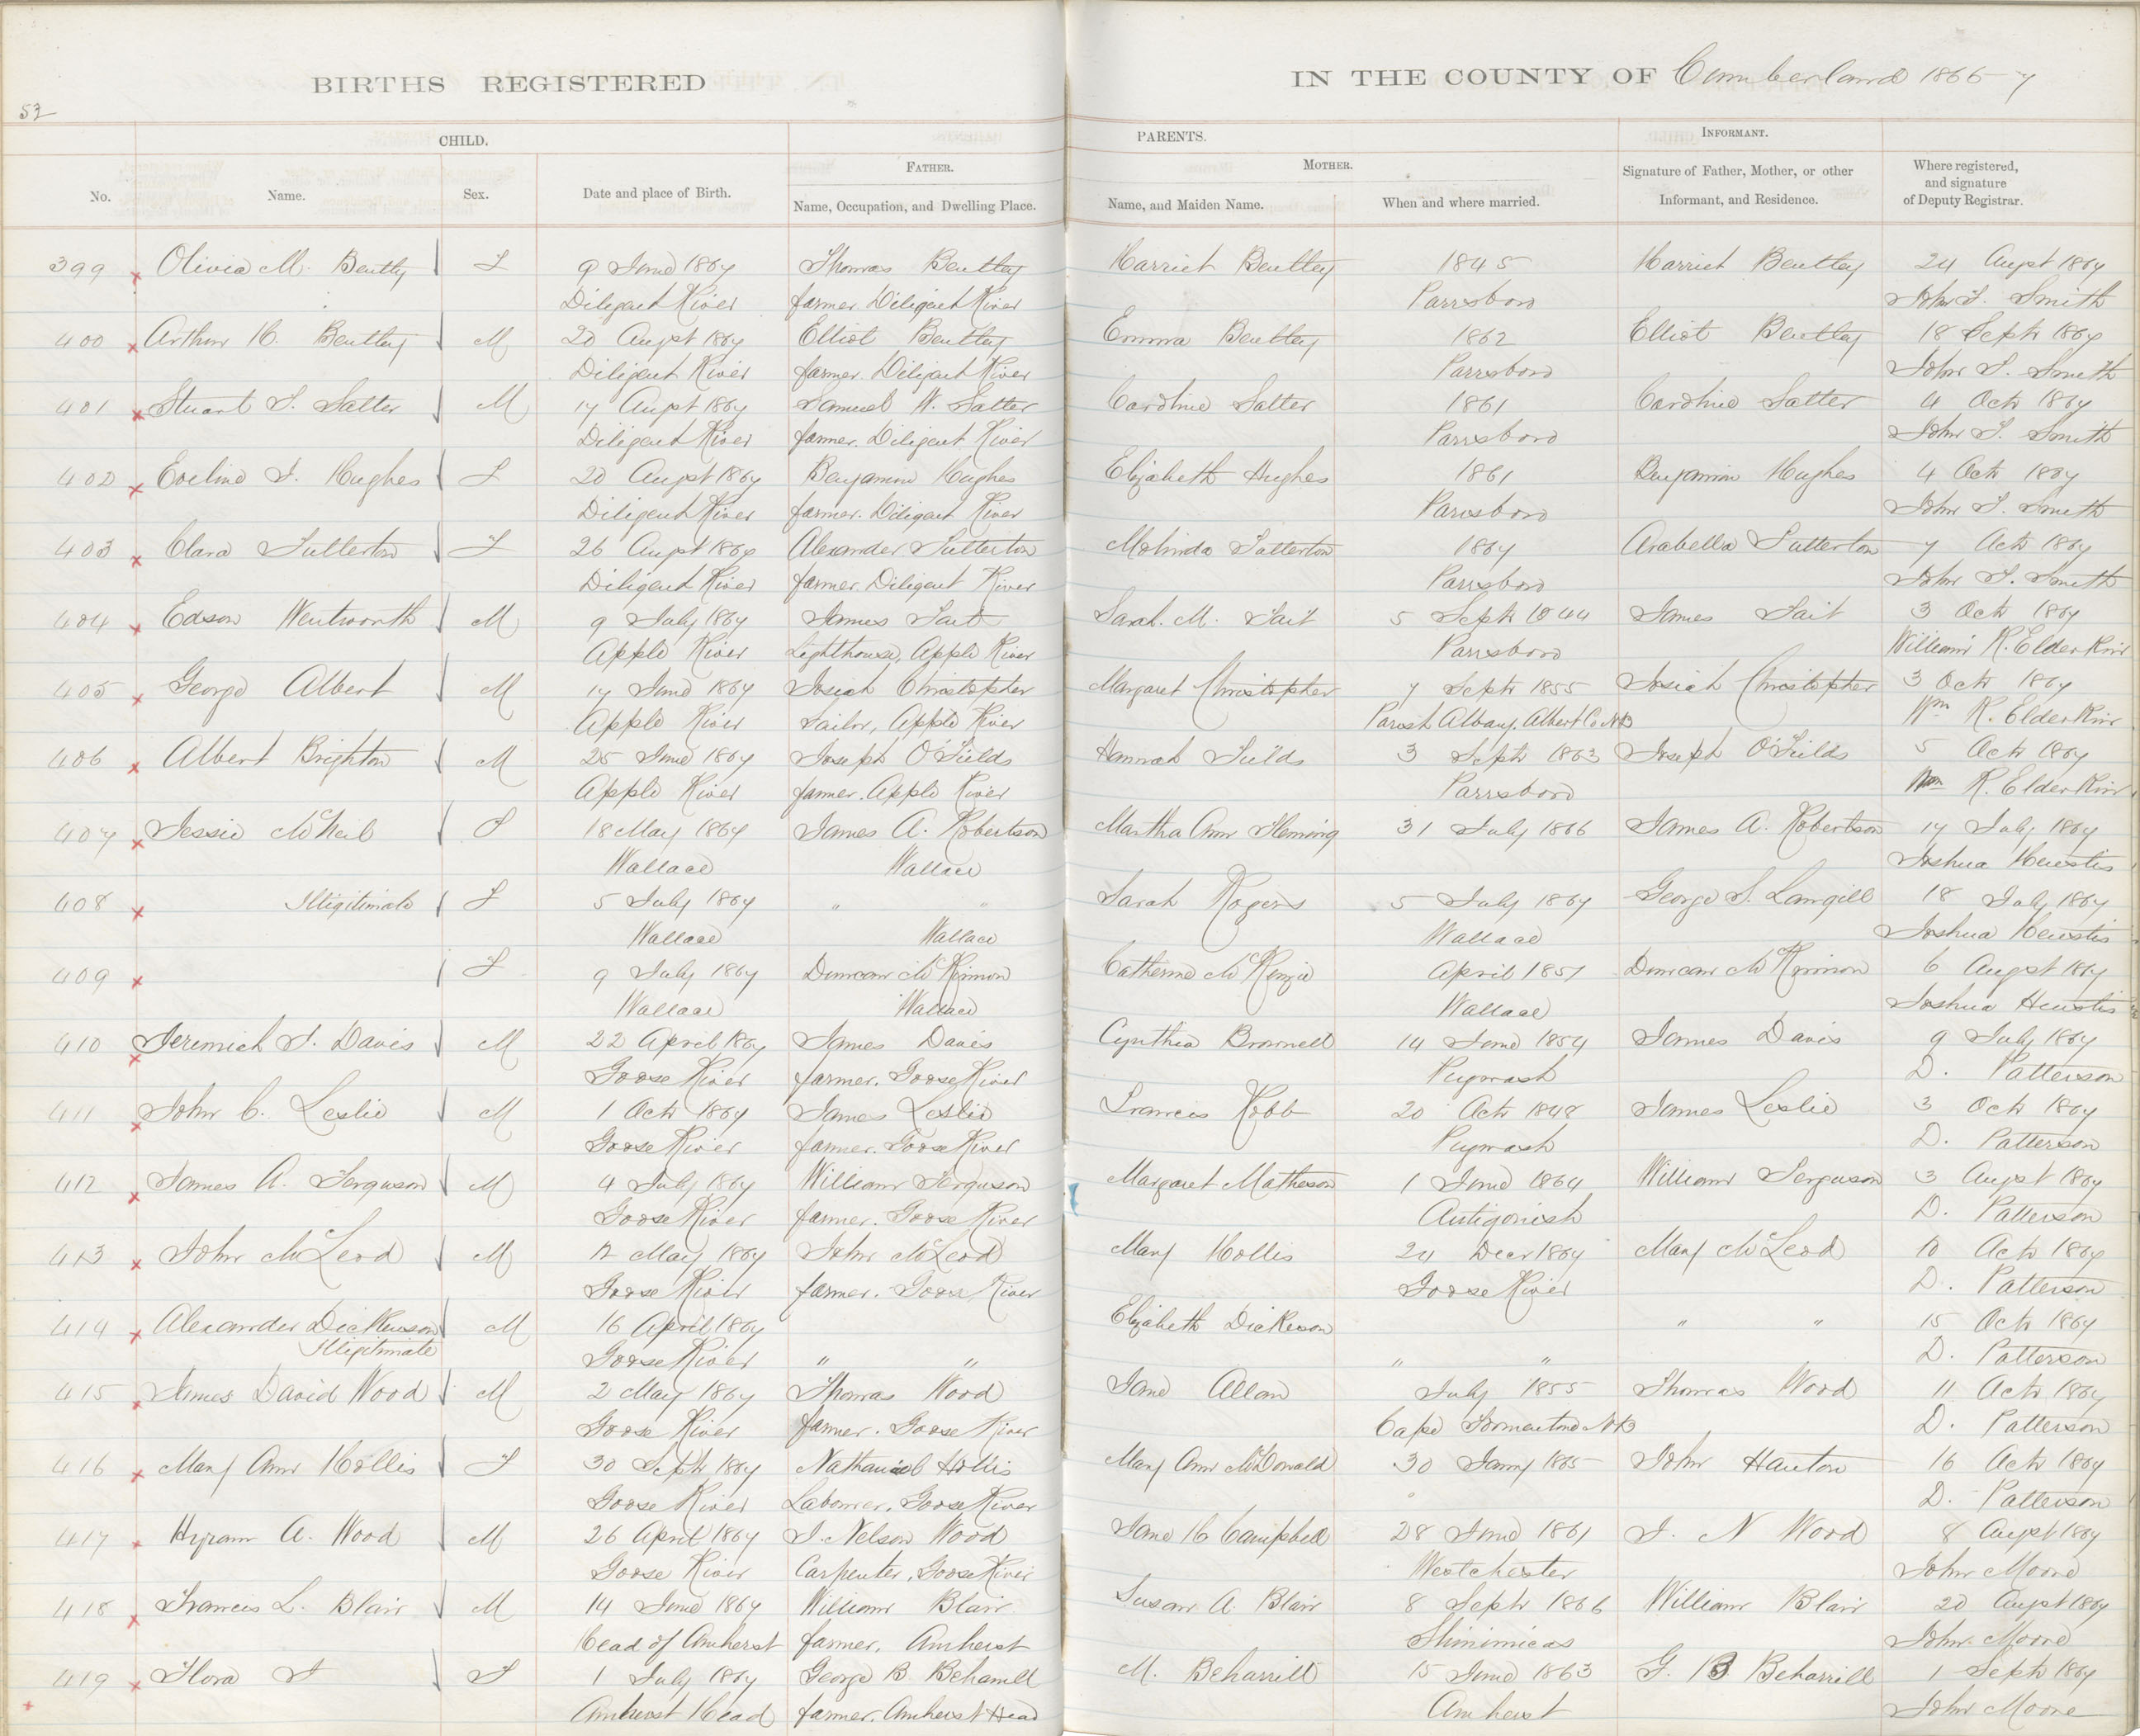 BIRTHS REGISTERED IN THE COUNTY OF Cumberland 1866-7
CHILD. PARENTS. INFORMANT.
FATHER. MOTHER. Signature of Father, Mother, or other Where registered,
and signature
No. Name. Sex. Date and place of Birth. Name, Occupation, and Dwelling Place. Name, and Maiden Name. When and where married. Informant, and Residence. of Deputy Registrar.
399 x Olivia M. Bentley F 9 June 1867 Thomas Bentley Harriet Bentley 1845 Harriet Bentley 24 Augst 1867
Diligent River farmer. Diligent River Parrsboro John S. Smith
400 x Arthur H. Bentley M 20 Augst 1867 Elliot Bentley Emma Bentley 1862 Elliot Bentley 18 Septr 1867
Diligent River farmer. Diligent River Parrsboro John S. Smith
401 x Stuart S. Salter M 17 Augst 1867 Samuel W. Salter Caroline Salter 1861 Caroline Salter 4 Octr 1867
Diligent River farmer. Diligent River Parrsboro John S. Smith
402 x Eveline Hughes F 20 Augst 1867 Benjamin Hughes Elizabeth Hughes 1861 Benjamin Hughes 4 Octr 1867
Diligent River farmer. Diligent River Parrsboro John S. Smith
403 x Clara Fullerton F 26 Augst 1867 Alexander Fullerton Melinda Fullerton 1867 Arabella Fullerton 7 Octr 1867
Diligent River farmer. Diligent River Parrsboro John S. Smith
404 x Edson Wentworth M 9 July 1867 James Tait Sarah. M. Tait 5 Septr 1844 James Tait 3 Octr 1867
Apple River Lighthouse, Apple River Parrsboro William R. Elderkin
405 x George Albert M 17 June 1867 Josiah Christopher Margaret Christopher 7 Septr 1855 Josiah Christopher 3 Octr 1867
Apple River Sailor, Apple River Parish Albany, Albert Co NB Wm R. Elderkin
406 x Albert Brighton M 25 June 1867 Joseph O'Fields Hannah Fields 3 Septr 1863 Joseph O'Fields 5 Octr 1867
Apple River farmer. Apple River Parrsboro Wm R. Elderkin
407 x Jessie McNeil F 18 May 1867 James A. Robertson Martha Ann Fleming 31 July 1866 James A. Robertson 17 July 1867
Wallace Wallace Joshua Heustis
408 x Illigitimate F 5 July 1867 " " Sarah Rogers 5 July 1867 George S. Langill 18 July 1867
Wallace Wallace Wallace Joshua Heustis
409 x F 9 July 1867 Duncan McKinnon Catherine McKenzie April 1857 Duncan McKinnon 6 Augst 1867
Wallace Wallace Wallace Joshua Heustis
410 x Jeremiah Davis M 22 April 1867 James Davis Cynthia Brownell 14 June 1854 James Davis 9 July 1867
Goose River farmer. Goose River Pugwash D. Patterson
411 x John C. Leslie M 1 Octr 1867 James Leslie Frances Robb 20 Octr 1848 James Leslie 3 Octr 1867
Goose River farmer. Goose River Pugwash D. Patterson
412 x James A. Ferguson M 4 July 1867 William Ferguson Margaret Matheson 1 June 1864 William Ferguson 3 Augst 1867
Goose River farmer. Goose River Antigonish D. Patterson
413 x John McLeod M 12 May 1867 John McLeod Mary Hollis 24 Decr 1864 Mary McLeod 10 Octr 1867
Goose River farmer. Goose River Goose River D. Patterson
414 x Alexander Dickenson M 16 April 1867 Elizabeth Dickeson " " 15 Octr 1867
Illigitimate Goose River " " " " D. Patterson
415 x James David Wood M 2 May 1867 Thomas Wood Jane Allan July 1855 Thomas Wood 11 Octr 1867
Goose River farmer. Goose River Cape Tormentine NB D. Patterson
416 x Mary Ann Hollis F 30 Septr 1867 Nathanieb Hollis Mary Ann McDonald 30 Jany 1865 John Hanton 16 Octr 1867
Goose River Labourer, Goose River D. Patterson
417 x Hyram A. Wood M 26 April 1867 J. Nelson Wood Jane H Campbell 28 June 1861 J. N Wood 8 Augst 1867
Goose River Carpenter, Goose River Westchester John Moore
418 x Frances L. Blair M 14 June 1867 William Blair Susan A. Blair 8 Septr 1866 William Blair 20 Augst 1867
Head of Amherst farmer, Amherst Shinimicas John Moore
419 x Flora F 1 July 1867 George B. Beharrell M. Beharrill 15 June 1863 G. B Beharrill 1 Septr 1867
Amherst Head farmer. Amherst Head Amherst John Moore